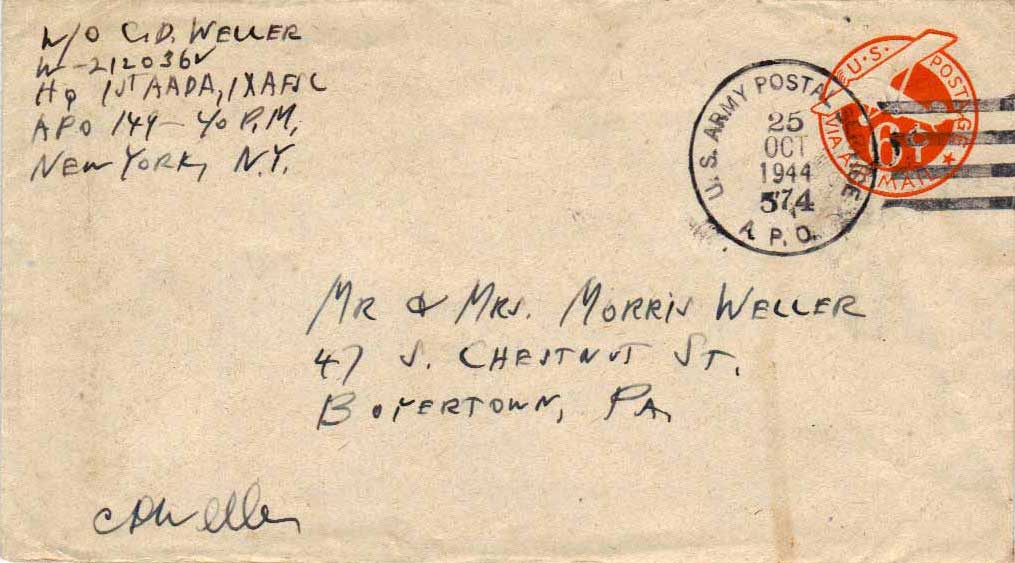 W/O C.D. WELLER
W-2120362
Hq 1ST AADA, IXAFSC
APO 149 - % P.M.
NEW YORK, N.Y.
U.S. ARMY POSTAL SERVICE
25
OCT
1944
574
A.P.O.
U.S. POSTAGE
6¢
VIA AIR MAIL
MR & MRS. MORRIS WELLER
47 S. CHESTNUT ST.
BOYERTOWN, PA.
CDWeller